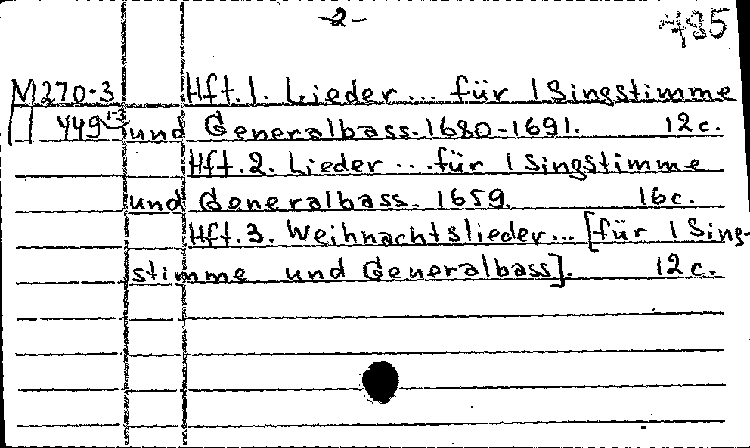 -2-
485
M270-3 Hft. 1. Lieder... für 1 Singstimme
449 1-3 und Generalbass. 1680-1691. 12c.
Hft. 2. Lieder... für 1 Singstimme
und Generalbass. 1659. 16c.
Hft. 3. Weihnachtslieder... [für 1 Sing-
stimme und Generalbass]. 12c.